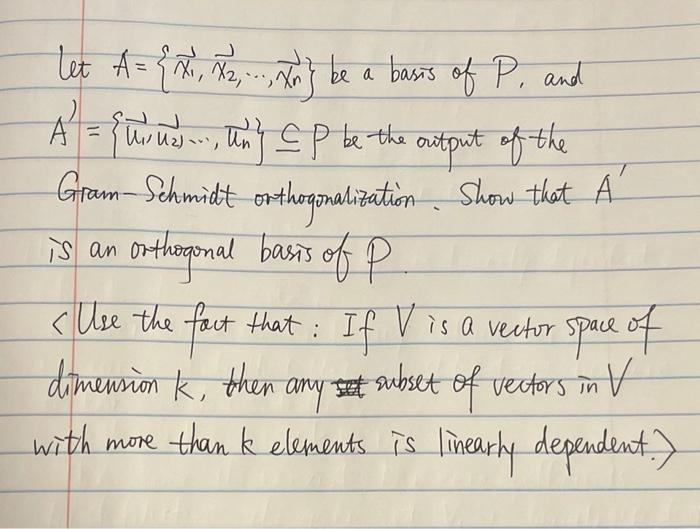 Let A = {x⃗₁, x⃗₂, ..., x⃗ₙ} be a basis of P, and
A' = {u⃗₁, u⃗₂, ..., u⃗ₙ} ⊆ P be the output of the
Gram-Schmidt orthogonalization. Show that A'
is an orthogonal basis of P.
<Use the fact that: If V is a vector space of
dimension k, then any subset of vectors in V
with more than k elements is linearly dependent.>